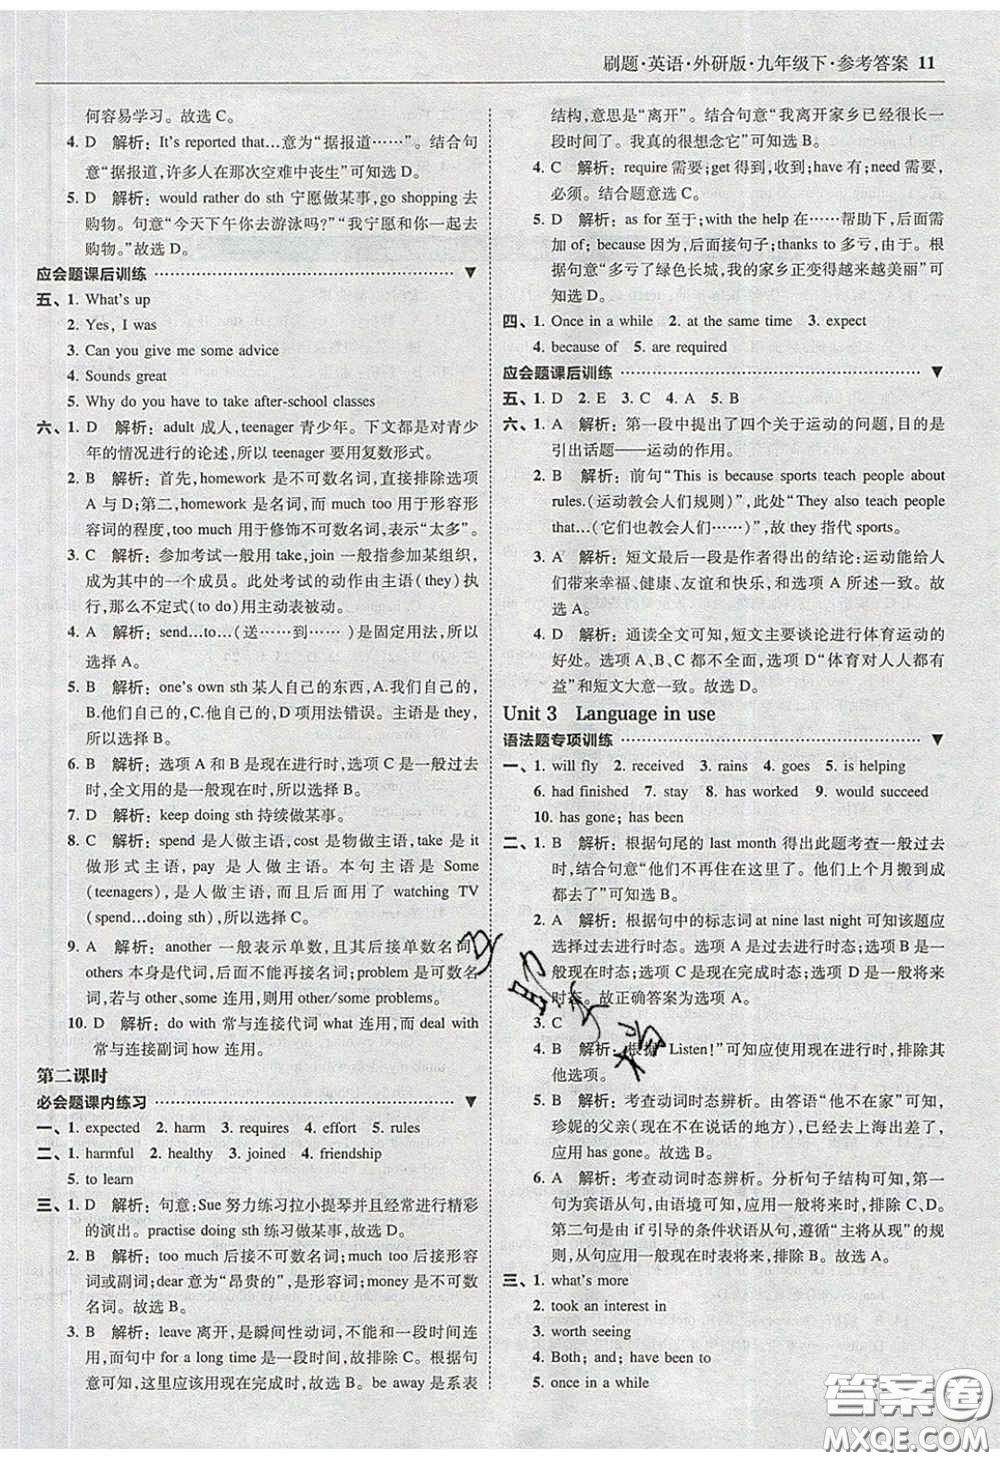 刷题·英语·外研版·九年级下·参考答案 11
何容易学习。故选 C。
4. D 解析：It's reported that…意为“据报道……”。结合句
意“据报道，许多人在那次空难中丧生”可知选 D。
5. D 解析：would rather do sth 宁愿做某事，go shopping 去
购物。句意“今天下午你去游泳吗？”“我宁愿和你一起去
购物。”故选 D。
应会题课后训练
五、1. What's up
2. Yes, I was
3. Can you give me some advice
4. Sounds great
5. Why do you have to take after-school classes
六、1. D 解析：adult 成人，teenager 青少年。下文都是对青少
年的情况进行的论述，所以 teenager 要用复数形式。
2. B 解析：首先，homework 是不可数名词，直接排除选项
A 与 D；第二，homework 是名词，而 much too 用于形容形
容词的程度，too much 用于修饰不可数名词，表示“太多”。
3. C 解析：参加考试一般用 take，join 一般指参加某组织，
成为其中的一个成员。此处考试的动作由主语(they)执
行，那么不定式(to do)用主动表被动。
4. A 解析：send…to…(送……到……)是固定用法，所以
选择 A。
5. B 解析：one's own sth 某人自己的东西，A.我们自己的，
B.他们自己的，C.他自己的，D 项用法错误。主语是 they，
所以选 B。
6. B 解析：选项 A 和 B 是现在时，选项 C 和 D 是过去
时，全文用的是一般现在时，所以选 B。
7. D 解析：keep doing sth 持续做某事。
8. C 解析：spend 是人做主语，cost 是物做主语，take 是 it
做形式主语，pay 是人做主语。本句主语是 Some
(teenagers)，是人做主语，而且后面用了 watching TV
(spend…doing sth)，所以选择 C。
9. A 解析：another 一般表示单数，且其后接单数名词；
others 本身是代词，后面不能再接名词；problem 是可数名
词，若与 other、some 连用，则用 other/some problems。
10. D 解析：do with 常与连接代词 what 连用，而 deal with
常与连接副词 how 连用。
第二课时
必会题课内练习
一、1. expected 2. harm 3. requires 4. effort 5. rules
二、1. harmful 2. healthy 3. joined 4. friendship
5. to learn
三、1. D 解析：句意：Sue 努力练习拉小提琴并且经常进行精彩
的演出。practise doing sth 练习做某事，故选 D。
2. B 解析：too much 后接不可数名词；much too 后接形容
词或副词；dear 意为“昂贵的”，是形容词；money 是不可数
名词。故选 B。
3. B 解析：leave 离开，是瞬间性动词，不能和一段时间连
用，而空后 for a long time 是一段时间，故排除 C。根据句
意可知，这里应该用现在完成时，故选 B。be away 是系表
结构，意思是“离开”。结合句意“我离开家乡已经很长一
段时间了。我真的很想念它”可知选 B。
4. C 解析：require 需要；get 得到，收到；have 有；need 需要，
必须。结合题意选 C。
5. D 解析：as for 至于；with the help 在……帮助下，后面需
加 of；because 因为，后接句子；thanks to 多亏，由于。根
据句意“多亏了绿色长城，我的家乡正变得越来越美丽”可
知选 D。
四、1. Once in a while 2. at the same time 3. expect
4. because of 5. are required
应会题课后训练
五、1. D 2. E 3. C 4. A 5. B
六、1. A 解析：第一段中提出了四个关于运动的问题，目的是
引出话题——运动的作用。
2. B 解析：前句“This is because sports teach people about
rules.(运动教会人们规则)”，此处“They also teach people
that…(它们也教会人们……)”，故 they 指代 sports。
3. A 解析：短文最后一段是作者得出的结论：运动能给人
们带来幸福、健康、友谊和快乐，和选项 A 所述一致。故
选 A。
4. D 解析：通读全文可知，短文主要谈论进行体育运动的
好处。选项 A、B、C 都不全面，选项 D“体育对人人都有
益”和短文大意一致。故选 D。
Unit 3 Language in use
语法题专项训练
一、1. will fly 2. received 3. rains 4. goes 5. is helping
6. had finished 7. stay 8. has worked 9. would succeed
10. has gone; has been
二、1. B 解析：根据句尾的 last month 得出此题考查一般过去
时，结合句意“他们不再住在这里了。他们上个月搬到成
都去了”可知选 B。
2. A 解析：根据句中的标志词 at nine last night 可知该题应
选择过去进行时态。选项 A 是过去进行时态；选项 B 是一
般过去时态；选项 C 是现在完成时态；选项 D 是一般将来
时态。故正确答案为选项 A。
3. C
4. B 解析：根据“Listen!”可知应使用现在进行时，排除其
他选项。
5. B 解析：考查动词时态辨析。由答语“他不在家”可知，
珍妮的父亲(现在不在说话的地方)，已经去上海出差了，应
用 has gone。故选 B。
6. A 解析：考查动词时态辨析。分析句子结构可知，第一
句为宾语从句，由语境可知，应用一般将来时，故排除 C、D。
第二句是由 if 引导的条件状语从句，遵循“主将从现”的规
则，从句应用一般现在时表将来，排除 B。故选 A。
三、1. what's more
2. took an interest in
3. worth seeing
4. Both; and; have been to
5. once in a while
答案圈
MXQE.COM